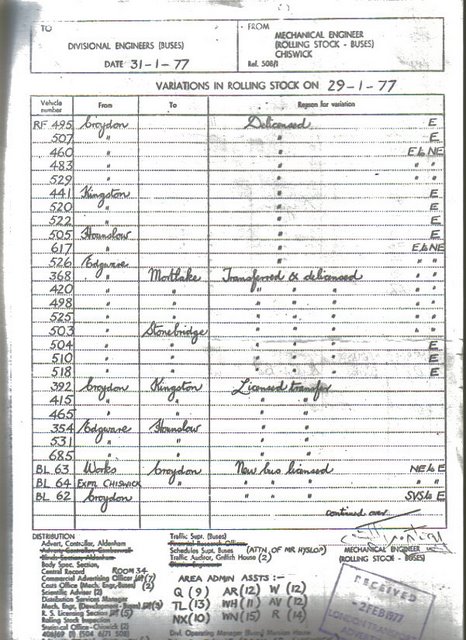 TO
DIVISIONAL ENGINEERS (BUSES)
DATE 31-1-77
FROM
MECHANICAL ENGINEER
(ROLLING STOCK - BUSES)
CHISWICK
Ref. 508/1
VARIATIONS IN ROLLING STOCK ON 29-1-77
Vehicle number From To Reason for variation
RF 495 Croydon Delicensed E
507 " " E
460 " " E to NE
483 " " " "
529 " " " "
441 Kingston " E
520 " " E
522 " " E
505 Hounslow " E
617 " " E to NE
526 Edgware " " "
368 " Mortlake Transferred & delicensed " "
420 " " " " " " "
498 " " " " " " "
525 " " " " " " "
503 " Stonebridge " " " " "
504 " " " " " E
510 " " " " " E
518 " " " " " E
392 Croydon Kingston Licensed transfer
415 " " " "
465 " " " "
354 Edgware Hounslow " "
531 " " " "
685 " " " "
BL 63 Works Croydon New bus licensed NE to E
BL 64 EXPTL CHISWICK " " " " " "
BL 62 Croydon SVS to E
continued over
MECHANICAL ENGINEER
(ROLLING STOCK - BUSES)
DISTRIBUTION
Advert. Controller, Aldenham
Body Spec. Section,
Central Record ROOM 34
Commercial Advertising Officer (7)
Costs Office (Mech. Engr-Buses) (2)
Scientific Adviser (2)
Distribution Services Manager
Mech. Engr, (Development - Buses) (3)
R. S. Licensing Section (5)
Rolling Stock Inspection
Statistical Office - Chiswick (2)
Traffic Supt. (Buses)
Financial Research Officer
Schedules Supt. Buses (ATTN. OF MR HYSLOP)
Traffic Auditor, Griffith House (2)
AREA ADMIN ASSTS :-
Q (9) AR (12) W (12)
TL (13) WH (11) AV (12)
NX (10) WN (15) R (14)
RECEIVED
-2 FEB 1977